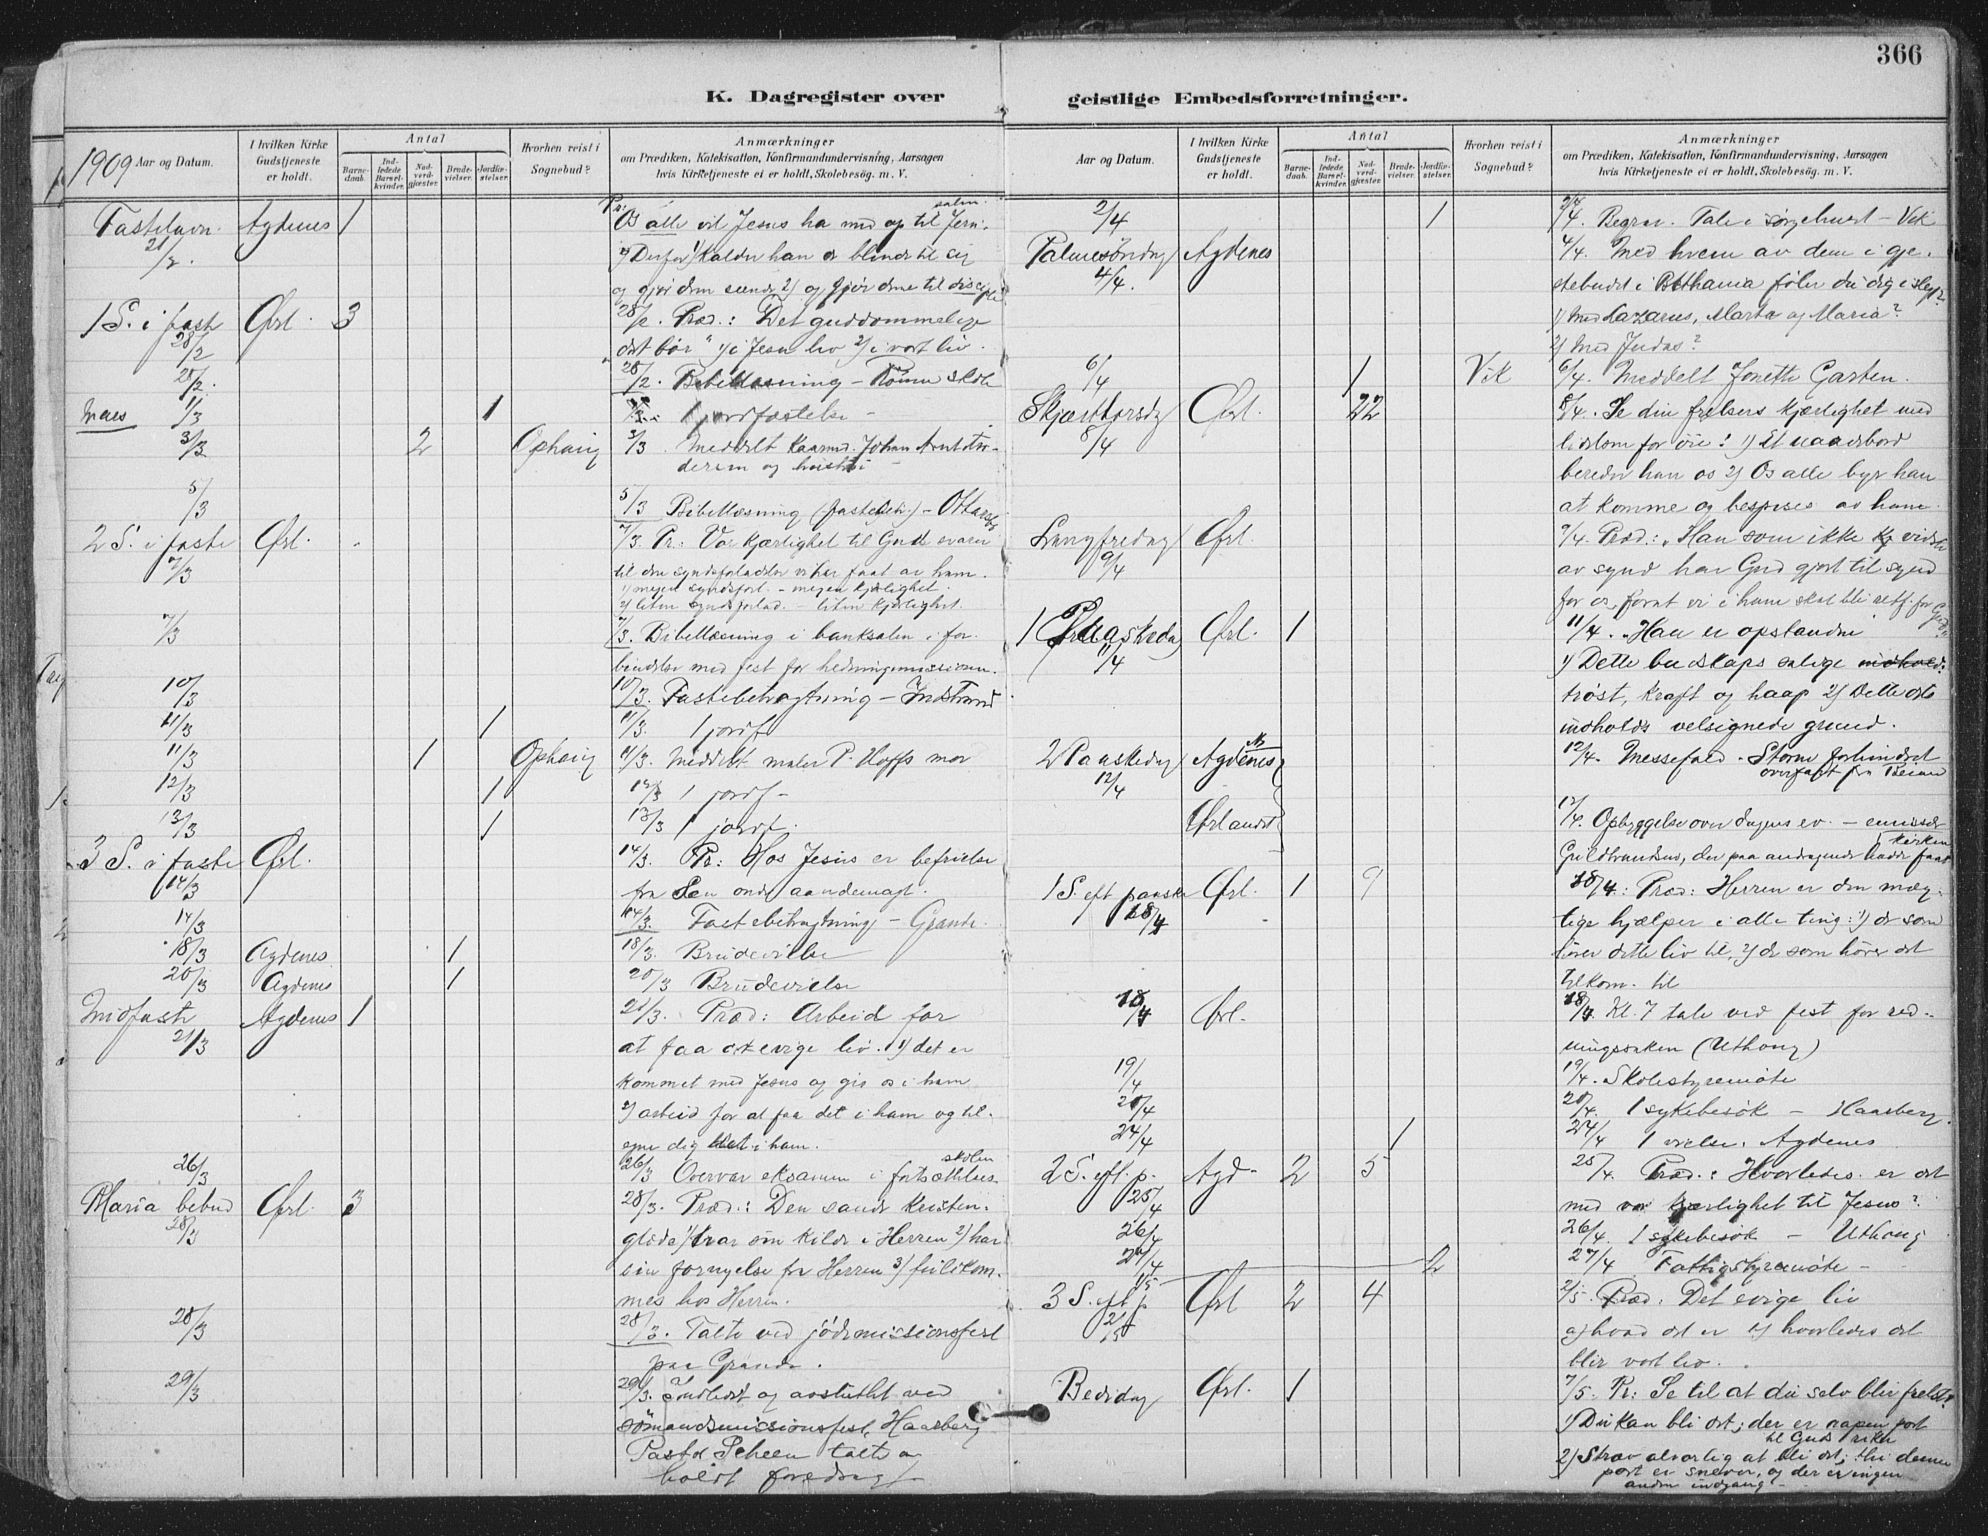 366
K. Dagregister over geistlige Embedsforretninger.
1909 Aar og Datum.
I hvilken Kirke Gudstjeneste er holdt.
Antal
Barnedaab.
Indledede Barselkvinder.
Nadverdgjæster.
Brudevielser.
Jordfæstelser.
Hvorhen reist i Sognebud?
Anmærkninger
om Prædiken, Katekisation, Konfirmandundervisning, Aarsagen
hvis Kirketjeneste ei er holdt, Skolebesøg. m. V.
Fastelavn Agdenes 1 Pr: Os alle vil Jesus ha med op til Jeru-
salm.
21/2. Derfor 1) Kalder han os blinde til sig
og gjør dem seende 2) og gjør dem til discipl
1 S. i faste Ørl. 3 28/2. Præd.: Det guddommelige
28/2 "bør" 1) i Jesu liv 2) i vort liv.
28/2. 28/2. Bibellæsning - skole
Mars 1/3 1 1 jordfæstelse -
3/3 2 Ophaug 3/3. Meddelt Johan
og hustru -
5/3 5/3 Bibellæsning -
2 S. i faste Ørl. 7/3. Pr: Vor kjærlighet til Gud svarer
7/3 til den syndsforladelse vi har faat av ham.
1) megen syndsforl. - megen kjærlighet
2) liten syndsforlad. - liten kjærlighet.
7/3 7/3. Bibellæsning i banksalen i for-
bindelse med fest for hedningemissionen.
10/3 10/3. Fastebetragtning - Indstrand
11/3 1 11/3. 1 jordf.
11/3 1 Ophaug 11/3. Meddelt maler P. Hoffs mor
12/3 1 12/3 1 jordf-
13/3 1 13/3 1 jordf.
3 S. i faste Ørl. 14/3. Pr: Hos Jesus er befrielse
14/3 fra den onde aandemagt.
14/3 14/3. Fastebetragtning - Grande.
18/3 Agdenes 1 18/3. Brudevielse
20/3 Agdenes 1 20/3 Brudevielse
Midfaste Agdenes 1 21/3. Præd: Arbeid for
21/3 at faa det evige liv. 1) det er
kommet med Jesus og gis os i ham
2) arbeid for at faa det i ham og til-
egne dig det i ham.
26/3 26/3 Overvar eksamen i fortsættelses-
skolen
Maria bebud Ørl. 3 28/3. Præd.: Den sande kristen-
28/3 glæde 1) har sin kilde i Herren 2) har
sin fornyelse fra Herren 3) fuldkom-
mes hos Herren.
28/3 28/3. Talte ved jødemissionsfest
paa Grande.
29/3 29/3. Indledet og avsluttet ved
sømandsmissionsfest, Haarberg
Pastor Scheen talte og
holdt foredrag
Aar og Datum.
I hvilken Kirke Gudstjeneste er holdt.
Antal
Barnedaab.
Indledede Barselkvinder.
Nadverdgjæster.
Brudevielser.
Jordfæstelser.
Hvorhen reist i Sognebud?
Anmærkninger
om Prædiken, Katekisation, Konfirmandundervisning, Aarsagen
hvis Kirketjeneste ei er holdt, Skolebesøg. m. V.
2/4 1 2/4. Begrav. Tale i sørgehuset - Vik
Palmesøndag Agdenes 4/4. Med hvem av dem i gje-
4/4. stebudet i Bethania føler du dig i slegt?
1) Med Lazarus, Marta og Maria?
2) Med Judas?
6/4 1 Vik 6/4. Meddelt Jonette Garten.
Skjærthorsdag Ørl. 22 8/4. Se din frelsers kjærlighet med
8/4 lidelsen for øie! 1) Et naadebord
bereder han os 2) Os alle byr han
at komme og bespises av ham
Langfredag Ørl. 9/4. Præd.: "Han som ikke vidste
9/4 av synd har Gud gjort til synd
for os forat vi i ham skal bli retf. for Gud."
1 Paaskedag Ørl. 1 11/4. "Han er opstanden"
11/4 1) Dette budskaps salige indhold:
trøst, kraft og haap 2) Dette
indholds velsignede grund.
2 Paaskedag Agdenes 12/4. Messefald. Storm forhindret
12/4 overfart fra Beian
Ørlandet 12/4. Opbyggelse over dagens ev. - emissær
Guldbrandsen, der paa andragende hadde faat
kirken
1 S. eft paaske Ørl. 1 9 18/4.: Præd: Herren er den mæg-
18/4 tige hjælper i alle ting: 1) de som
hører dette liv til, 2) de som hører det
tilkom. til
18/4 Ørl. 18/4. Kl. 7 tale ved fest for red-
ningssaken (Uthaug)
19/4 19/4. Skolestyremøte
20/4 20/4. 1 sykebesøk - Haarberg.
24/4 1 24/4 1 vielse. Agdenes
2 S. eft. p. Agd- 2 5 25/4. Præd.: Hvorledes er det
25/4 med vor kjærlighet til Jesus?
26/4 26/4. 1 sykebesøk - Uthaug
27/4 27/4 Fattigstyremøte -
1/5 2
3 S. eft p Ørl 2 4 2/5. Præd: Det evige liv
2/5 1) hvad det er 2) hvorledes det
blir vort liv.
Bededag Ørl. 1 7/5. Pr: Se til at du selv blir frelst!
1) Du kan bli det; der er aapen port
til Guds rike
2) Stræv alvorlig at bli det; thi denne
port er snever, og der er ingen
anden indgang -